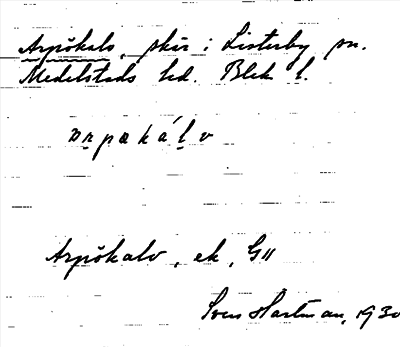 Arpökalv, skär i Listerby sn.
Medelstads hd. Blek l.
Arpökalv, ek, G11
Sven Hartman, 1930